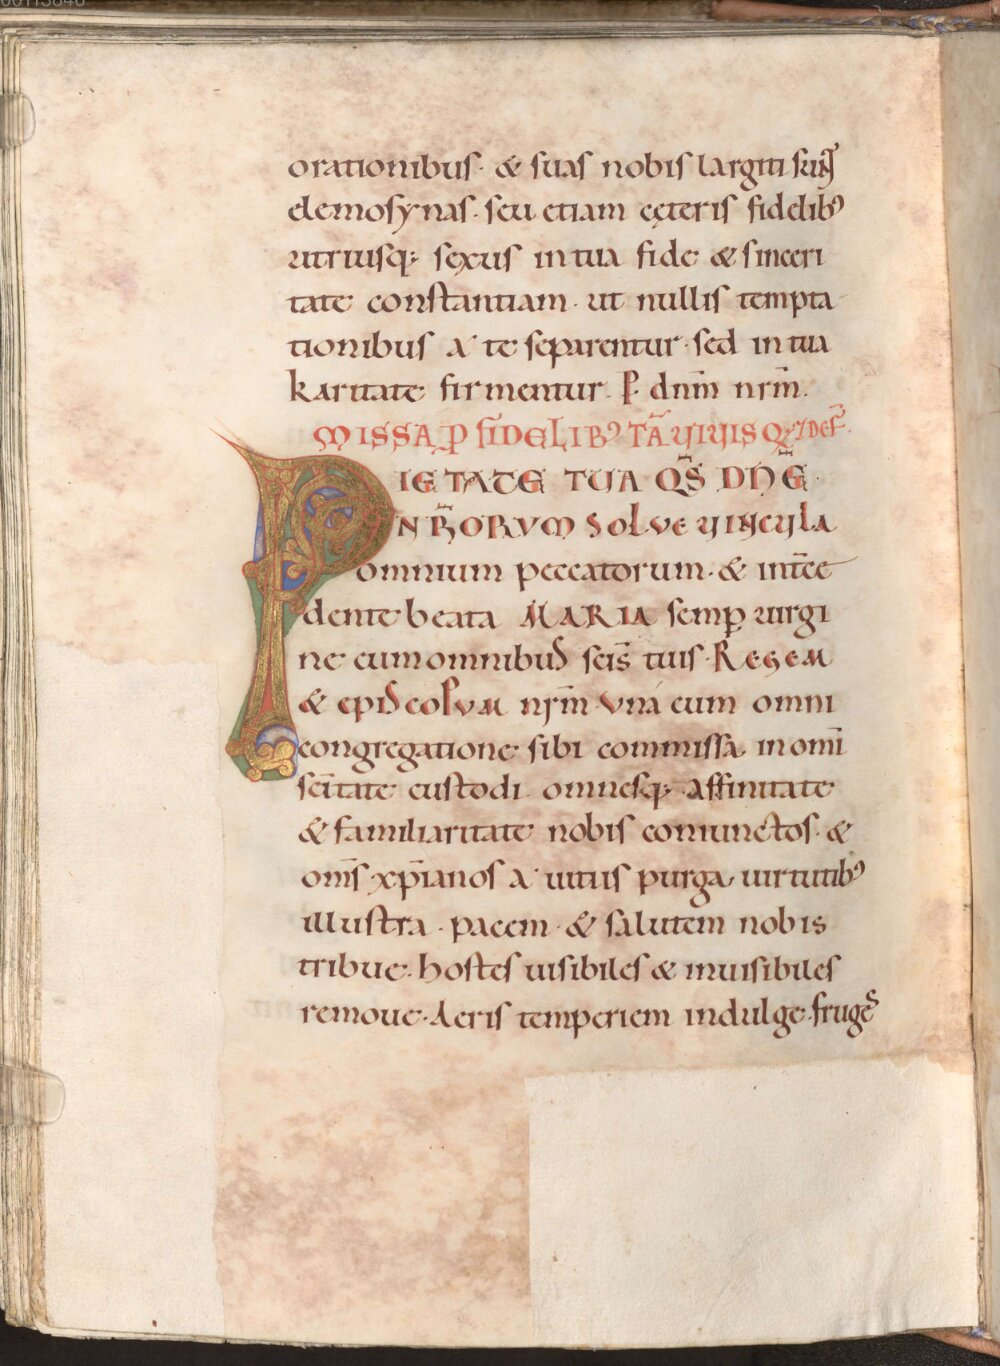 orationibus· & suas nobis largiti sunt
elemosynas· seu etiam cęteris fidelib9
utriusq; sexus in tua fide & sinceri
tate constantiam· ut nullis tempta
tionibus a te separentur· sed in tua
karitate firmentur· P· dnm̄ nrm̄·
MISSA P FIDELIB9 TĀ VIVIS Q̄
PIETATE TUA QS̄ DNĒ
NR̄ORVM SOLVE VINCVLA
omnium peccatorum· & intēce
dente beata MARIA semp virgi
ne cum omnibus scīs tuis· REGEM
& episcopum nrm̄ una cum omni
congregatione sibi commissa in omī
scītate custodi omnesq; affinitate
& familiaritate nobis coniunctos· &
omīs xpīanos a uitiis purga uirtutib9
illustra· pacem· & salutem nobis
tribue· hostes uisibiles & inuisibiles
remoue· Aeris temperiem indulge· fruges